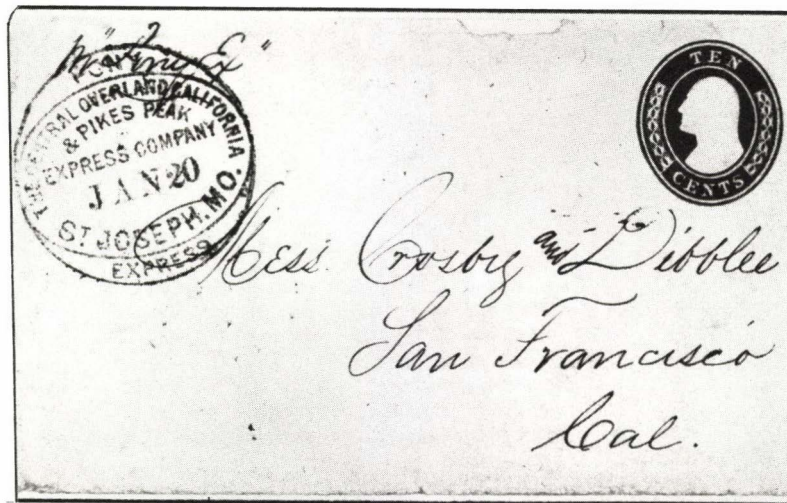 pr "Pony Ex"
PONY
THE CENTRAL OVERLAND CALIFORNIA
& PIKES PEAK
EXPRESS COMPANY
JAN 20
ST JOSEPH. MO.
EXPRESS
TEN
CENTS
Mess. Crosby and Dibblee
San Francisco
Cal.